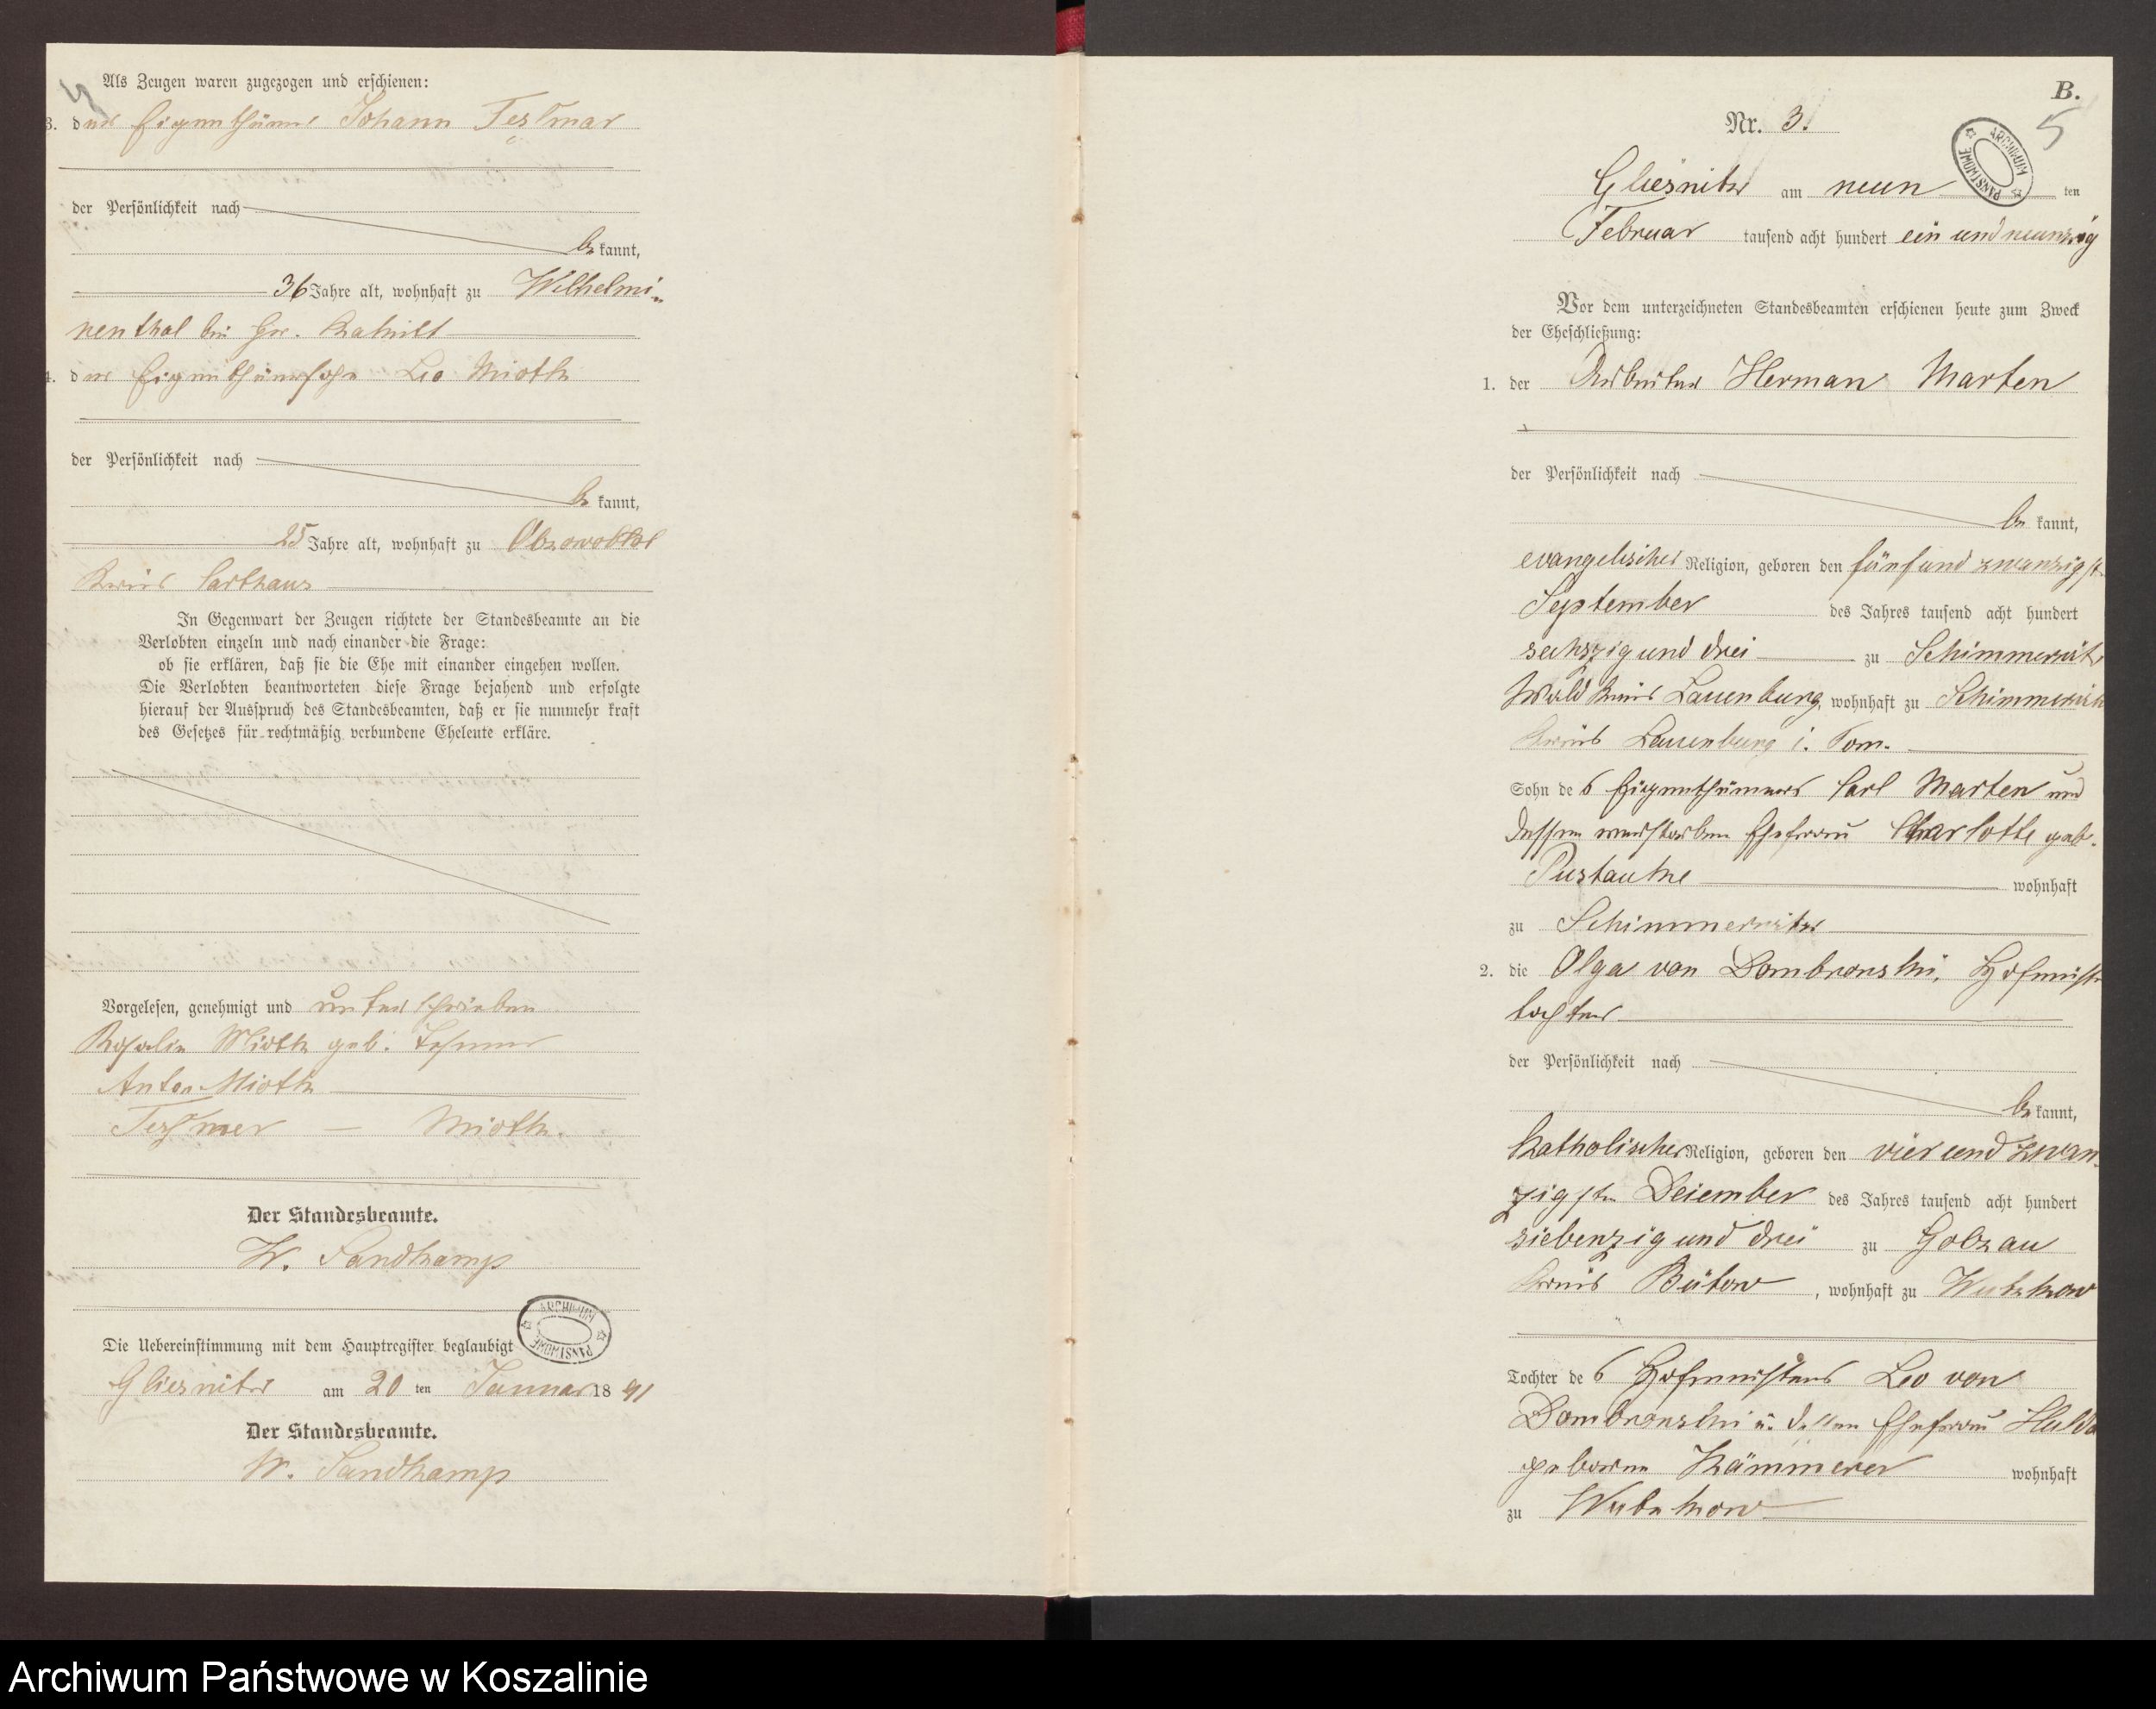 4
Als Zeugen waren zugezogen und erschienen:
3. der Eigenthümer Johann Teßmar
der Persönlichkeit nach
be kannt,
36 Jahre alt, wohnhaft zu Wilhelmi-
nenthal bei Gr.
4. der Eigenthümersohn Leo Mioth
der Persönlichkeit nach
be kannt,
25 Jahre alt, wohnhaft zu
Kreis Carthaus
In Gegenwart der Zeugen richtete der Standesbeamte an die
Verlobten einzeln und nach einander die Frage:
ob sie erklären, daß sie die Ehe mit einander eingehen wollen.
Die Verlobten beantworteten diese Frage bejahend und erfolgte
hierauf der Ausspruch des Standesbeamten, daß er sie nunmehr kraft
des Gesetzes für rechtmäßig verbundene Eheleute erkläre.
Vorgelesen, genehmigt und unterschrieben
Rosalie Mioth geb.
Anton Mioth
Teßmer — Mioth.
Der Standesbeamte.
W. Sandkamp
ARCHIWUM PAŃSTWOWE
Die Uebereinstimmung mit dem Hauptregister beglaubigt
Gliesnitz am 20 ten Januar 18 91
Der Standesbeamte.
W. Sandkamp
B.
5
Nr. 3.
ARCHIWUM PAŃSTWOWE
Gliesnitz am neun ten
Februar tausend acht hundert ein und neunzig
Vor dem unterzeichneten Standesbeamten erschienen heute zum Zweck
der Eheschließung:
1. der Arbeiter Herman Marten
der Persönlichkeit nach
be kannt,
evangelischer Religion, geboren den fünfund zwanzigst
September des Jahres tausend acht hundert
sechszig und drei zu Schimmerwitz
Wald Kreis Lauenburg, wohnhaft zu Schimmerwitz
Kreis Lauenburg i. Pom.
Sohn de s Eigenthümers Carl Marten und
dessen verstorbene Ehefrau Charlotte geb.
wohnhaft
zu Schimmerwitz
2. die Olga von Dombrowski, Hofmeister
tochter
der Persönlichkeit nach
be kannt,
katholischer Religion, geboren den vier und zwan-
zigsten Dezember des Jahres tausend acht hundert
siebenzig und drei zu Golzau
Kreis Bütow, wohnhaft zu Wutzkow
Tochter de s Hofmeisters Leo von
Dombrowski u. dessen Ehefrau Hulda
geborene Kämmerer wohnhaft
zu Wutzkow
Archiwum Państwowe w Koszalinie